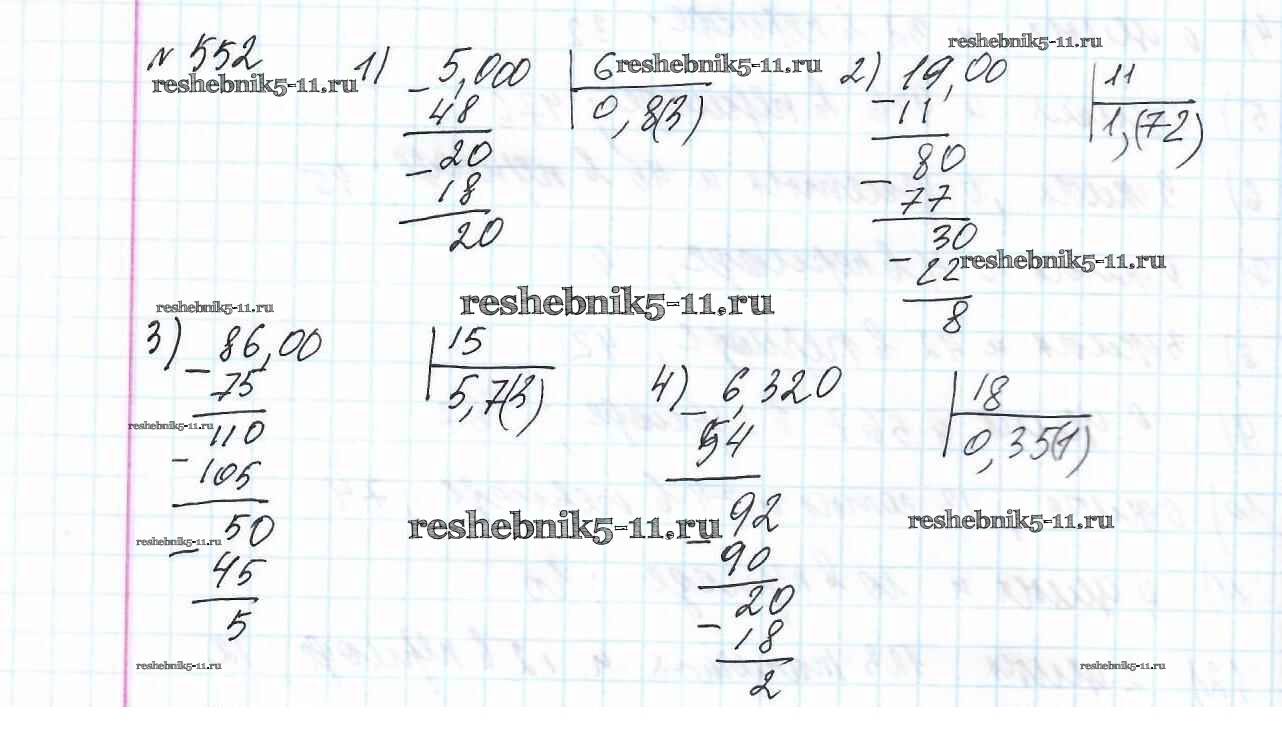 № 552
reshebnik5-11.ru
1) 5,000 | 6
reshebnik5-11.ru
- 48 | 0,8(3)
20
- 18
20
reshebnik5-11.ru
2) 19,00 | 11
- 11 | 1,(72)
80
- 77
30
- 22
reshebnik5-11.ru
8
reshebnik5-11.ru
reshebnik5-11.ru
3) 86,00 | 15
- 75 | 5,7(3)
reshebnik5-11.ru
110
- 105
50
reshebnik5-11.ru
- 45
5
reshebnik5-11.ru
4) 6,320 | 18
- 54 | 0,35(1)
92
reshebnik5-11.ru
reshebnik5-11.ru
- 90
20
- 18
2
reshebnik5-11.ru